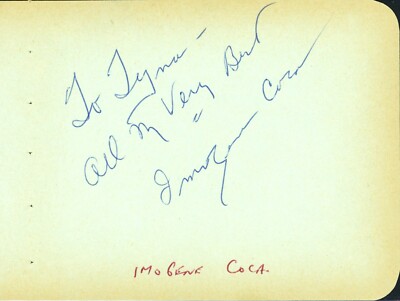 To Tyna -
All My Very Best
Imogene Coca
IMOGENE COCA